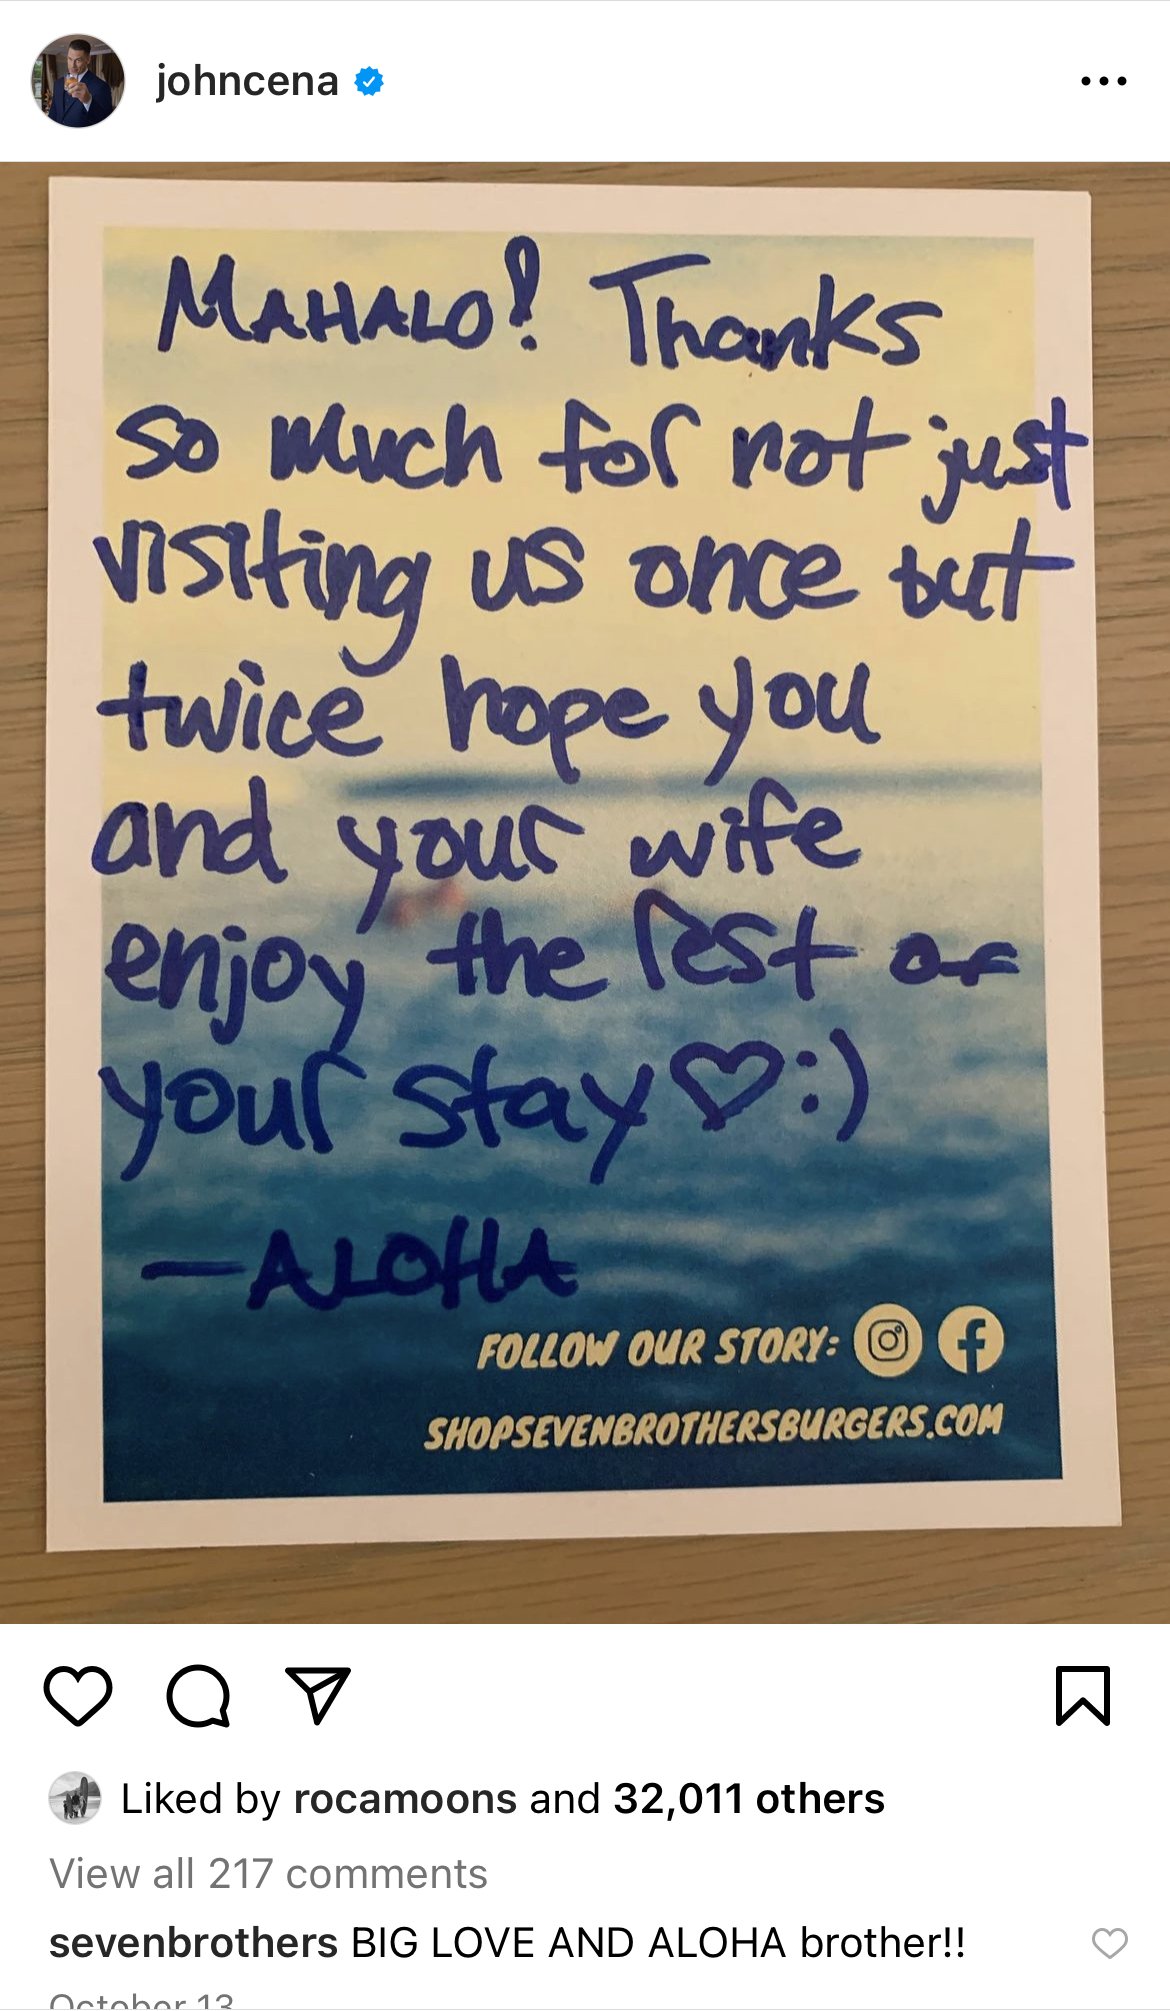 johncena
MAHALO! Thanks
so much for not just
visiting us once but
twice hope you
and your wife
enjoy the rest of
your stay♡:)
—ALOHA
FOLLOW OUR STORY:
SHOPSEVENBROTHERSBURGERS.COM
Liked by rocamoons and 32,011 others
View all 217 comments
sevenbrothers BIG LOVE AND ALOHA brother!!
October 13